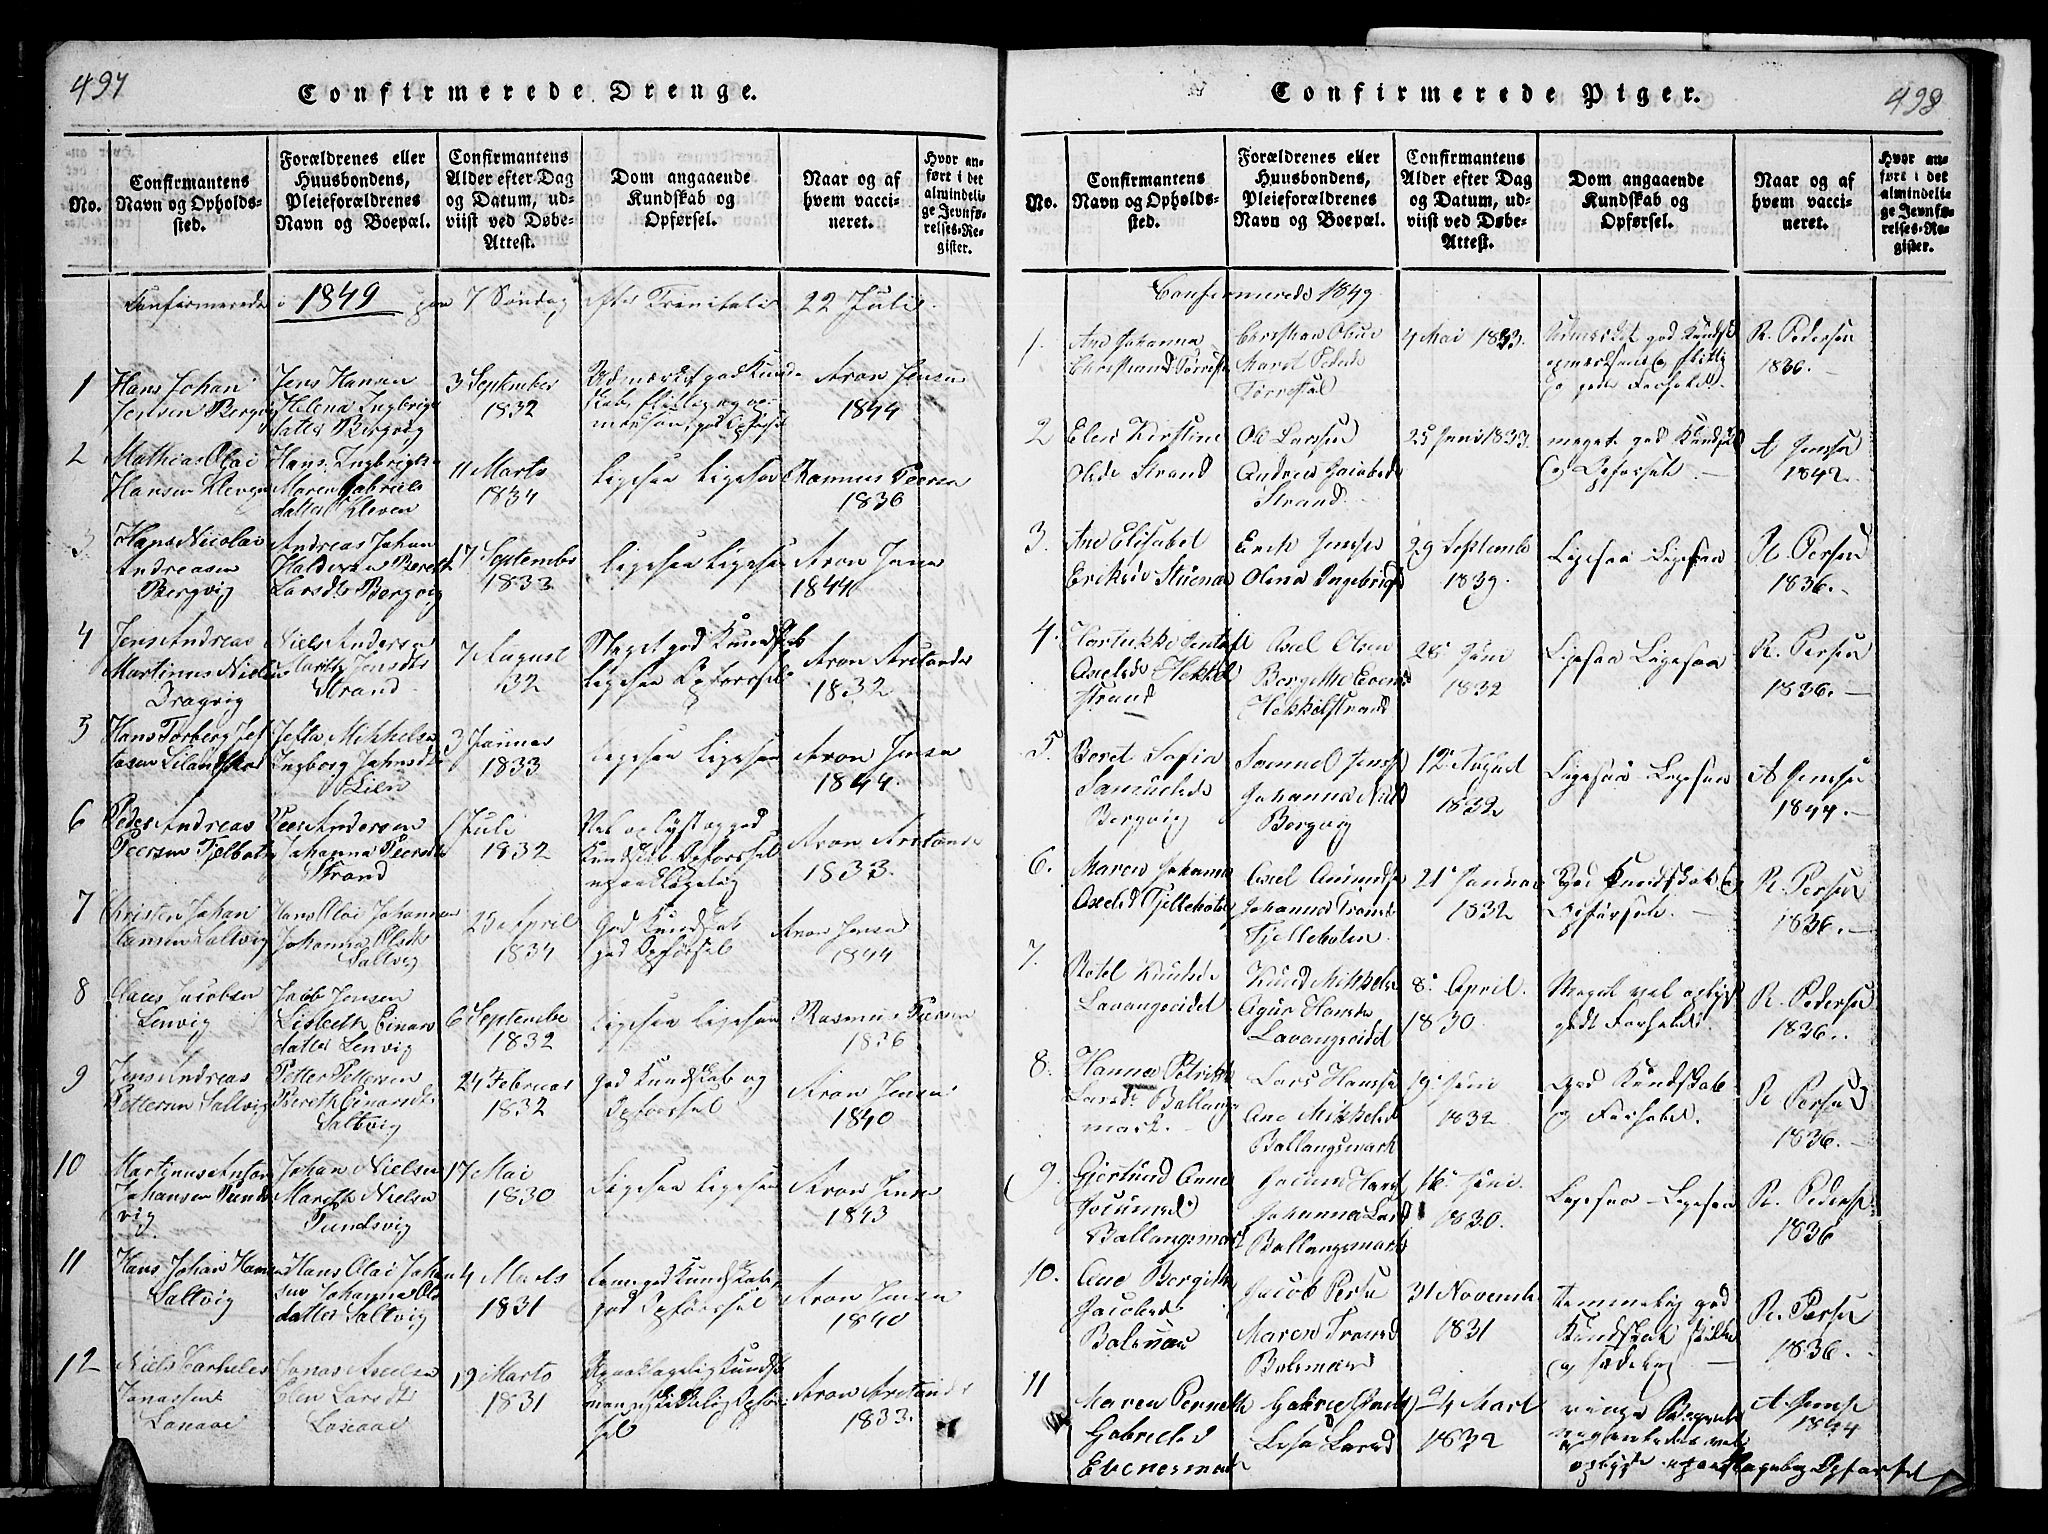 497
Confirmerede Drenge.
No.
Confirmantens Navn og Opholds-sted.
Forældrenes eller Huusbondens, Pleieforældrenes Navn og Boepæl.
Confirmantens Alder efter Dag og Datum, ud-viist ved Døbe-Attest.
Dom angaaende Kundskab og Opførsel.
Naar og af hvem vacci-neret.
Hvor an-ført i det almindeli-ge Jevnfø-relses-Re-gister.
Confermerede i 1849 paa 7 Søndag efter Trenitatis 22 Juli
1
Hans Johan
Jensen Bergvig
Jens Hansen
Helena Ingbrigts
datter Bergvig
3 September
1832
Udmærket god Kund
skab, flittig og op
mærksom, god Opførsel
Aron Jensen
1844
2
Mathias Olai
Hansen Kleven
Hans Ingbrigtsen
Maren Gabriels
datter Kleven
11 Marts
1834
Ligesaa Ligesaa
Rasmus Peersen
1836
3
Hans Nicolai
Andreasen
Bergvig
Andreas Johan
Haldorsen Bereth
Larsdtr Bergvig
17 September
1833
Ligesaa Ligesaa
Aron Jensen
1844
4
Jens Andreas
Martinus Niels
Dragvig
Niels Andersen
Marith Jensdtr
Strand
7 August
32
Meget god Kundskab
ligesaa Opførsel
Aron Arstander
1832
5
Hans Torberg Jef
tasen Liland
Jefta Mikkelsen
Ingborg Johnsdtr
Lien
3 Januar
1833
Ligesaa Ligesaa
Aron Jensen
1844.
6
Peder Andreas
Peersen Fjelbotn
Peer Andersen
Johanna Peersdtr
Strand
1 Juli
1832
Vel oplyst og god
Kundskab Opførsel
upaaklagelig
Aron Arstander
1833.
7
Christen Johan
Hansen Saltvig
Hans Olai Johannesen
Johanna Olsdtr
Saltvig
25 April
1834
God Kundskab
god Opførsel
Aron Jensen
1844
8
Claus Jacobsen
Lenvig
Jacob Jensen
Lisbeth Einars
datter Lenvig
6 September
1832
Ligesaa Ligesaa
Rasmus Peersen
1836
9
Jens Andreas
Pettersen Saltvig
Petter Pettersen
Bereth Einarsdtr
Saltvig
24 Februar
1832
God Kundskab og
Opførsel
Aron Jensen
1840
10
Martinus Anton
Johansen Sunds
vig
Johan Nielsen
Mareth Nielsen
Sundsvig
17 Mai
1830
Ligesaa Ligesaa
Aron Jensen
1843
11
Hans Johan Hansen
Saltvig
Hans Olai Johan
sen Johanna Ols
datter Saltvig
4 Marts
1831
god Kundskab,
god Opførsel
Aron Jensen
1840
12
Niels
Jonassen
Jonas Axelsen
Elen Larsdtr
19 Marts
1831
Upaaklagelig Kundskab
Opfør
sel
Aron Arstander
1833.
498
Confirmerede Piger.
No.
Confirmantens Navn og Opholds-sted.
Forældrenes eller Huusbondens, Pleieforældrenes Navn og Boepæl.
Confirmantens Alder efter Dag og Datum, ud-viist ved Døbe-Attest.
Dom angaaende Kundskab og Opførsel.
Naar og af hvem vacci-neret.
Hvor an-ført i det almindeli-ge Jevnfø-relses-Re-gister.
Confermerede 1849.
1.
Ane Johanna
Christiansd
Christian
Maret Peders
4 Mai 1833.
Udmærket god Kundsk
opmærksom & flittig
R. Pedersen
1836.
2
Elen Kirstine
Olsdr Strand
Ole Larsen
Andrea Jacobsd
Strand.
25 Juni 1833.
meget god Kundskab
& Opførsel.
A Jensen
1842.
3.
Ane Elisabet
Eriksdr Stuenæs
Erik Jensen
Olena Ingebrigtsd
29 September
1839.
Ligesaa Ligesaa
R. Persen
1836.
4.
Axelsdr Hekkel
strand
Axel Olsen
Bergethe Evensd
Hekkelstrand
28 Juni
1832
Ligesaa Ligesaa
R. Persen
1836.
5.
Beret Sofia
Samuelsdr
Bergvig
Samuel Jensen
Johanna Nielsd
Bergvig
12 August
1832
Ligesaa Ligesaa
A Jensen
1844.
6.
Maren Johanna
Axelsd Fjellbotn
Axel Amundsen
Johanna
Fjellboten
21 Januar
1832
God Kundskab &
Opførsel.
R. Persen
1836.
7.
Botel Knudsdr
Lavangseidet
Knud Mikkelsen
Lavangseidet
8 April.
1830
Meget vel oplyst
godt Forhold.
R. Pedersen
1836.
8.
Hanna Petrikke
Larsdr Ballangs
mark.
Lars Hansen
Ane Mikkelsd
Ballangsmark
19 Juni
1832
God Kundskab
& Forhold.
R Persen
1836.
9.
Gjertrud Anna
Jocumsd
Ballangsmark
Jocum Hansen
Johanna Larsd
Ballangsmark
16 Juni.
1830.
Ligesaa Ligesaa
R. Pedersen
1836
10.
Ane Bergithe
Jacobsd
Jacob Persen
Maren
31 November
1831
temmelig god
Kundskab
& sædelig
R. Persen
1836.
11
Maren Pernelle
Gabrielsd
Evenesmark
Gabriel
Larsd
24 Mart
1832
ringe
Opførsel
A Jensen
1844